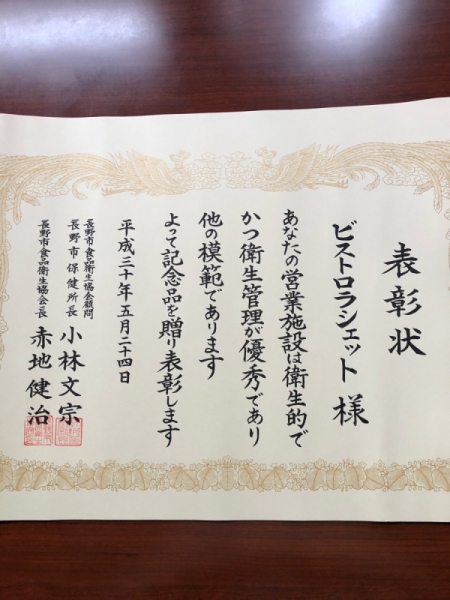 表彰状
ビストロラシェット 様
あなたの営業施設は衛生的で
かつ衛生管理が優秀であり
他の模範であります
よって記念品を贈り表彰します
平成三十年五月二十四日
長野市食品衛生協会顧問
長野市保健所長 小林文宗
長野市食品衛生協会長 赤地健治